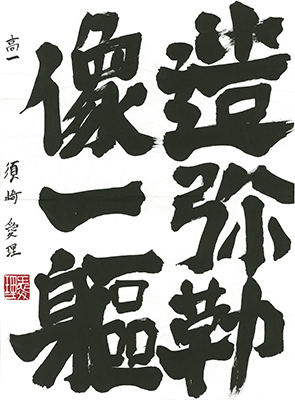 造弥勒
像一躯
高一 須崎愛理